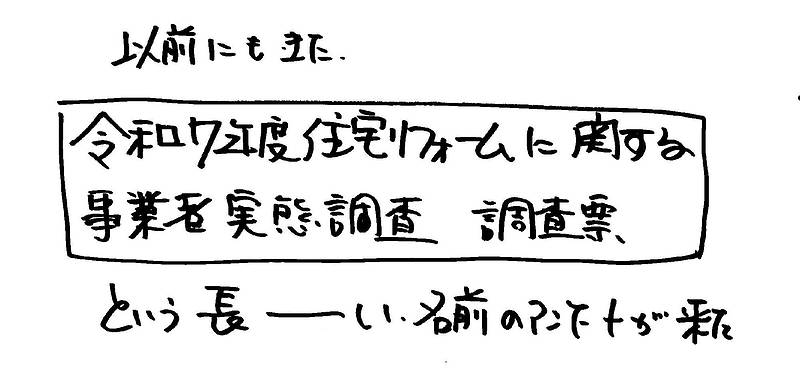 以前にもきた.
令和7年度住宅リフォームに関する
事業者実態調査 調査票
という長――い名前のアンケートが来た